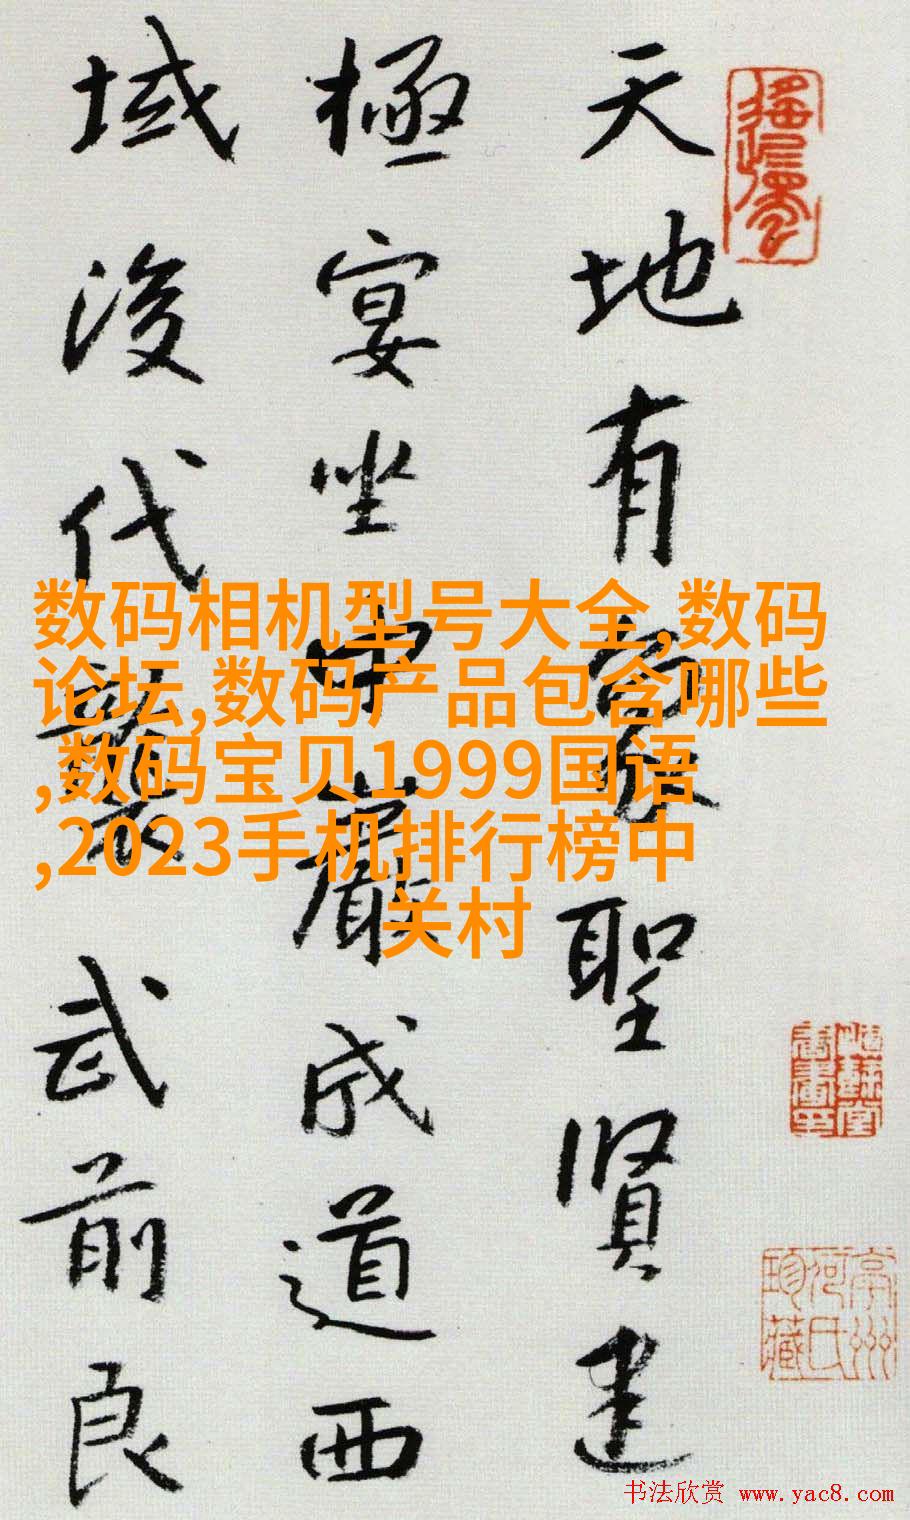 天地有象聖賢建
極宴坐中巖成道西
域後代襲武前良
数码相机型号大全,数码
论坛,数码产品包含哪些
,数码宝贝1999国语
,2023手机排行榜中
关村
亭州
何氏
珍藏
书法欣赏 www.yac8.com